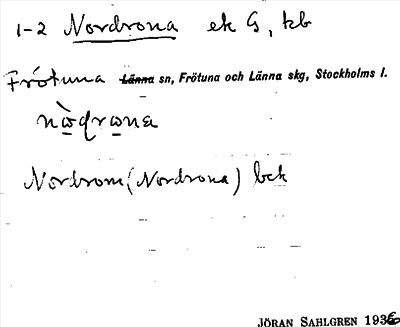 1-2 Nordrona ek G, kb
Frötuna Länna sn, Frötuna och Länna skg, Stockholms l.
nòqrona
Nordrom (Nordrona) bck
JÖRAN SAHLGREN 1936